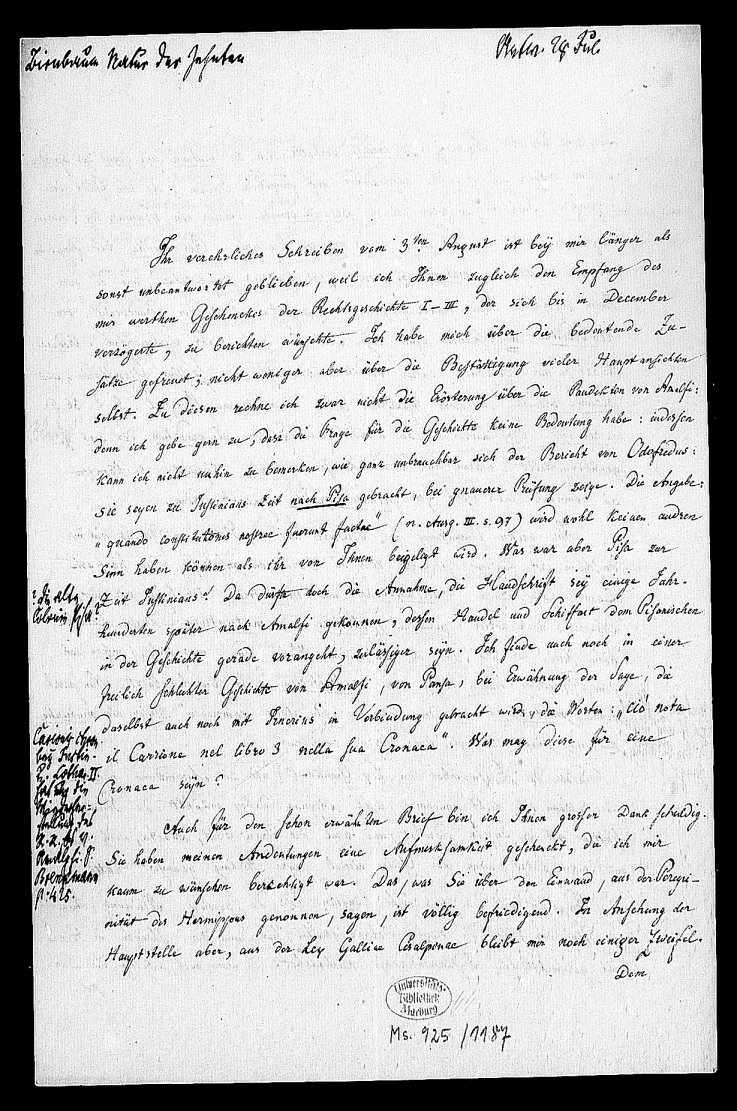 Birnbaum Natur der Zehnten
Antw. 28 Jul
Ihr verehrliches Schreiben vom 3ten August ist bey mir länger als
sonst unbeantwortet geblieben, weil ich Ihnen zugleich den Empfang des
mir werthen Geschenckes der Rechtsgeschichte I–III, der sich bis in December
verzögerte, zu berichten wünschte. Ich habe mich über die bedeutende Zu-
sätze gefreuet; nicht weniger aber über die Bestätigung vieler Hauptansichten
selbst. Zu diesen rechne ich zwar nicht die Erörterung über die Pandekten von Amalfi:
denn ich gebe gern zu, dasz die Frage für die Geschichte keine Bedeutung habe: indessen
kann ich nicht umhin zu bemerken, wie ganz unbrauchbar sich der Bericht von Odofredus:
sie seyen zu Justinians Zeit nach Pisa gebracht, bei gnauerer Prüfung zeige. Die Angabe:
"quando constitutiones nostrae fuerunt factae" (n. Ausg. III. s. 97) wird wohl keinen andren
Sinn haben können als ihr von Ihnen beigelegt wird. Was war aber Pisa zur
Zeit Justinians? Da dürfte doch die Annahme, die Handschrift sey einige Jahr-
hunderten später nach Amalfi gekommen, dessen Handel und Schiffart dem Pisanischen
in der Geschichte gerade vorangeht, zulässiger seyn. Ich finde auch noch in einer
freilich schlechten Geschichte von Amalfi, von Pansa, bei Erwähnung der Sage, die
daselbst auch noch mit Irnerius in Verbindung gebracht wird, die Worten: "Ciò nota
il Carrione nel libro 3 nella sua Cronaca". Was mag diese für eine
Cronaca seyn?
? die alte
Colonia Pisa?
Lothar II.
Brenkmann
p. 425.
Auch für den schon erwähnten Brief bin ich Ihnen grossen Dank schuldig.
Sie haben meinen Andeutungen eine Aufmerksamkeit geschenckt, die ich mir
kaum zu wünschen berechtigt war. Das, was Sie über den Einwand, aus der Peregri-
nität des Hermippus genommen, sagen, ist völlig befriedigend. In Ansehung der
Hauptstelle aber, aus der Lex Galliae Cisalpinae bleibt mir noch einiger Zweifel.
Dem
Universitäts-
Bibliothek
Marburg
Ms. 925/1187